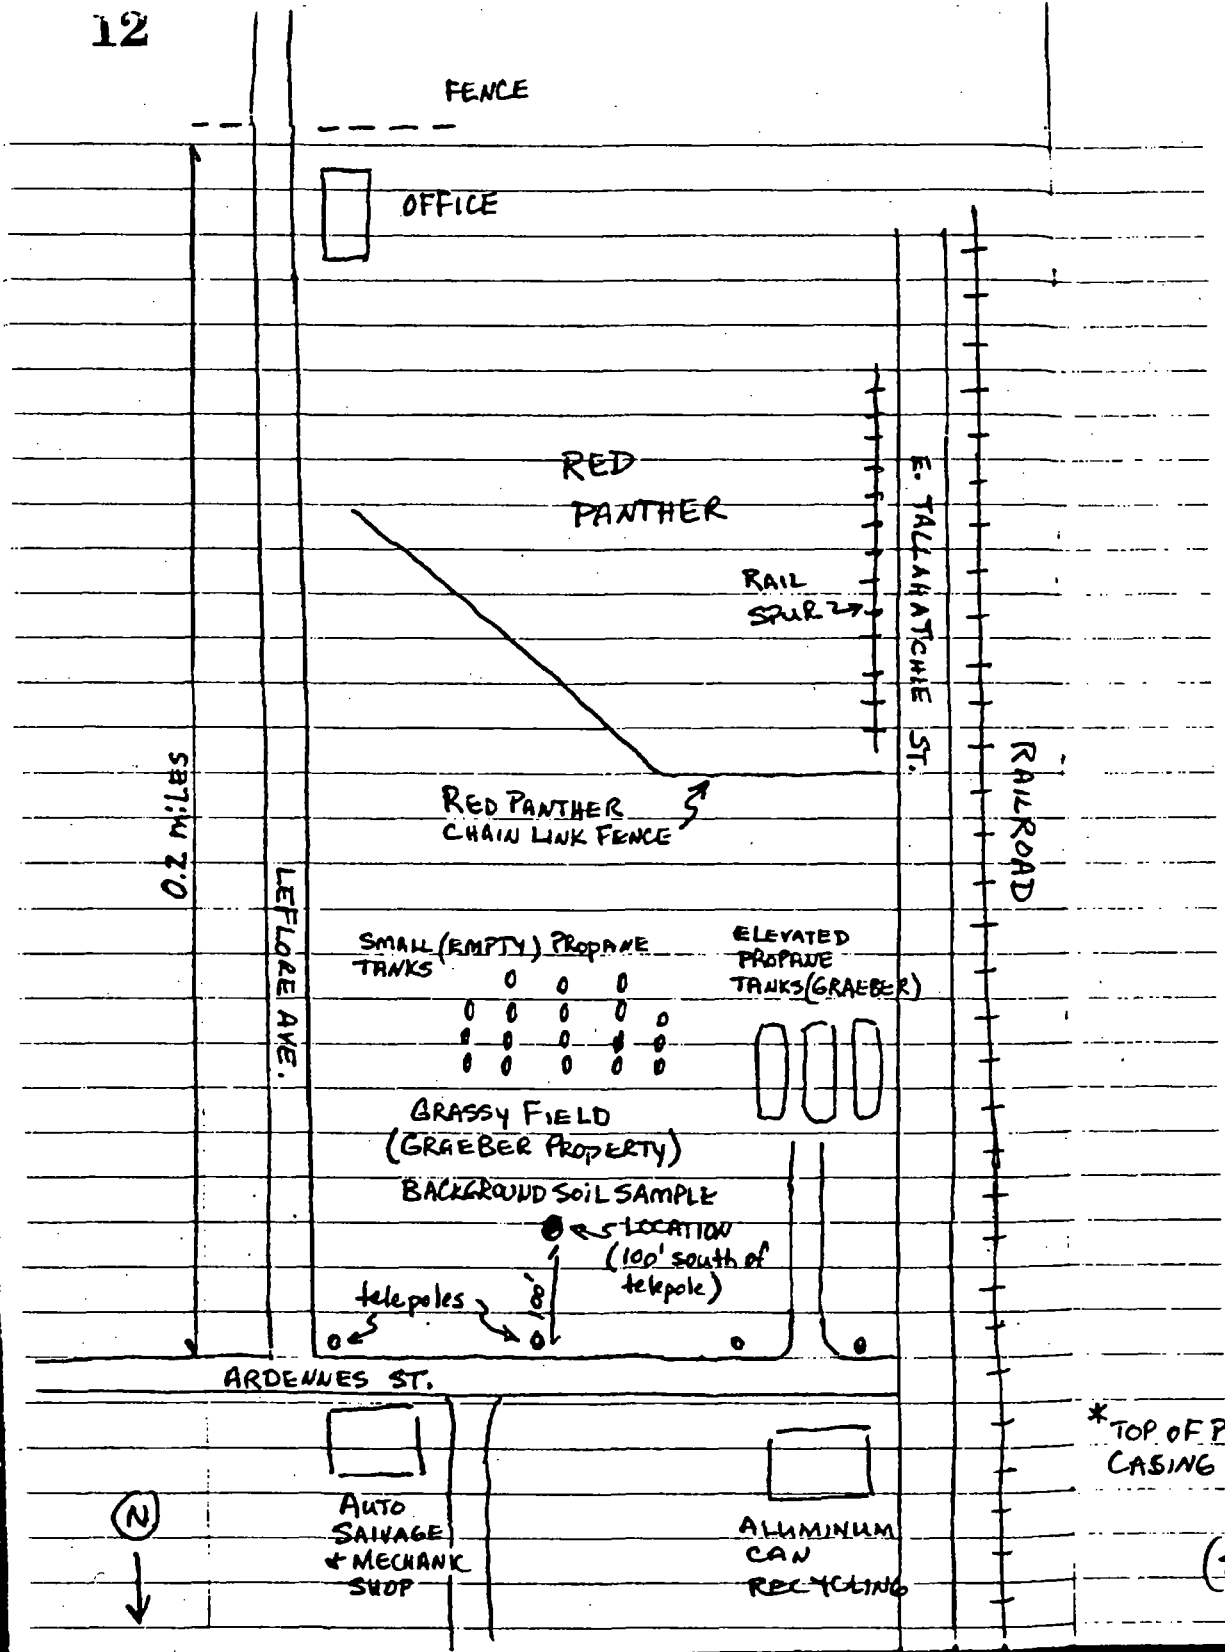 12
FENCE
OFFICE
RED
PANTHER
RAIL
SPUR
E. TALLAHATCHIE ST.
RAILROAD
0.2 MILES
RED PANTHER
CHAIN LINK FENCE
LEFLORE AVE.
SMALL (EMPTY) PROPANE
TANKS
ELEVATED
PROPANE
TANKS (GRAEBER)
GRASSY FIELD
(GRAEBER PROPERTY)
BACKGROUND SOIL SAMPLE
LOCATION
(100' south of
telepole)
100'
telepoles
ARDENNES ST.
* TOP OF
CASING
N
AUTO
SALVAGE
+ MECHANIC
SHOP
ALUMINUM
CAN
RECYCLING